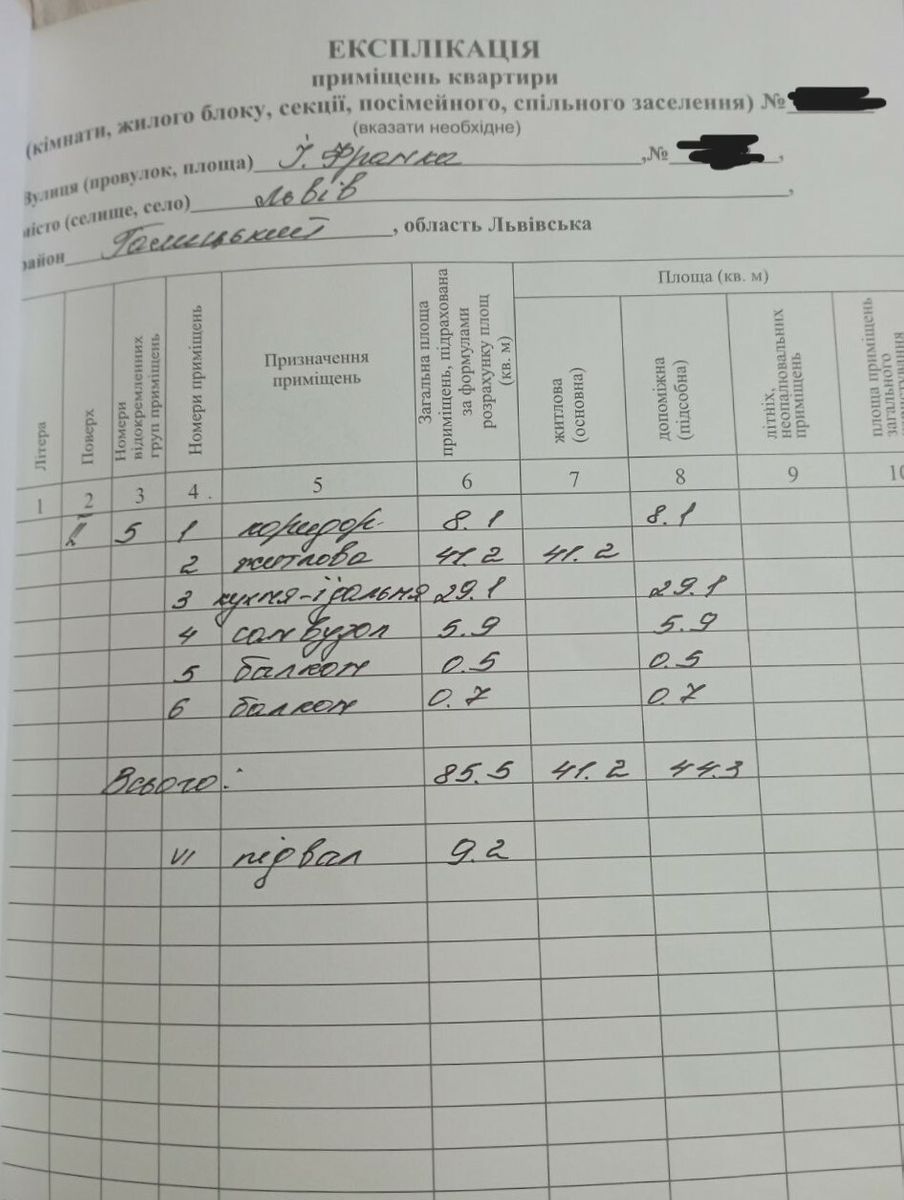 ЕКСПЛІКАЦІЯ
приміщень квартири
(кімнати, жилого блоку, секції, посімейного, спільного заселення) №
(вказати необхідне)
Вулиця (провулок, площа) І. Франка ,№ ,
місто (селище, село) Львів ,
район Галицький , область Львівська
Літера
Поверх
Номери відокремленних груп приміщень
Номери приміщень
Призначення приміщень
Загальна площа приміщень, підрахована за формулами розрахунку площ (кв. м)
Площа (кв. м)
житлова (основна)
допоміжна (підсобна)
літніх, неопалювальних приміщень
площа приміщень загального
1 2 3 4 . 5 6 7 8 9 10
ІІ 5 1 коридор 8.1 8.1
2 житлова 41.2 41.2
3 кухня-їдальня 29.1 29.1
4 санвузол 5.9 5.9
5 балкон 0.5 0.5
6 балкон 0.7 0.7
Всього: 85.5 41.2 44.3
VI підвал 9.2